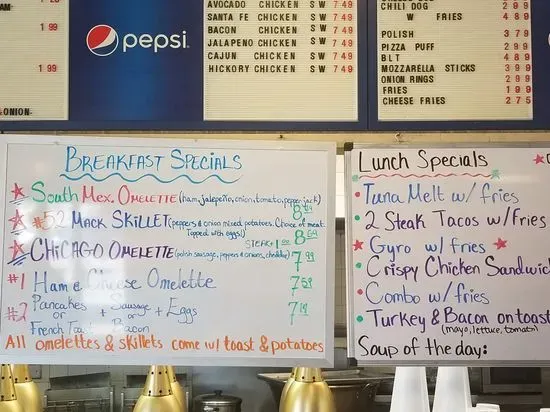 1 99
1 99
1 99
ONION
pepsi
AVOCADO CHICKEN SW 7 49
SANTA FE CHICKEN SW 7 49
BACON CHICKEN SW 7 49
JALAPENO CHICKEN SW 7 49
CAJUN CHICKEN SW 7 49
HICKORY CHICKEN SW 7 49
CHILI DOG 2 99
W FRIES 4 89
POLISH 3 79
PIZZA PUFF 2 99
BLT 4 89
MOZZARELLA STICKS 3 99
ONION RINGS 2 99
FRIES 1 99
CHEESE FRIES 2 75
BREAKFAST SPECIALS
South Mex. OMELETTE (ham, jalepeño, onion, tomato, pepper-jack)
#52 MACK SKILLET (peppers & onion mixed potatoes. Choice of meat. 8 64
Topped with eggs!) STEAK + 1.00
CHICAGO OMELETTE (polish sausage, peppers & onions, cheddar) 7 99
#1 HAM & Cheese Omelette 7 59
#2 Pancakes or French Toast + Sausage or Bacon + Eggs 7 19
All omelettes & skillets come w/ toast & potatoes
Lunch Specials
Tuna Melt w/ fries
2 Steak Tacos w/Fries
Gyro w/ fries
Crispy Chicken Sandwic
Combo w/fries
Turkey & Bacon on toast
(mayo, lettuce, tomato)
Soup of the day: